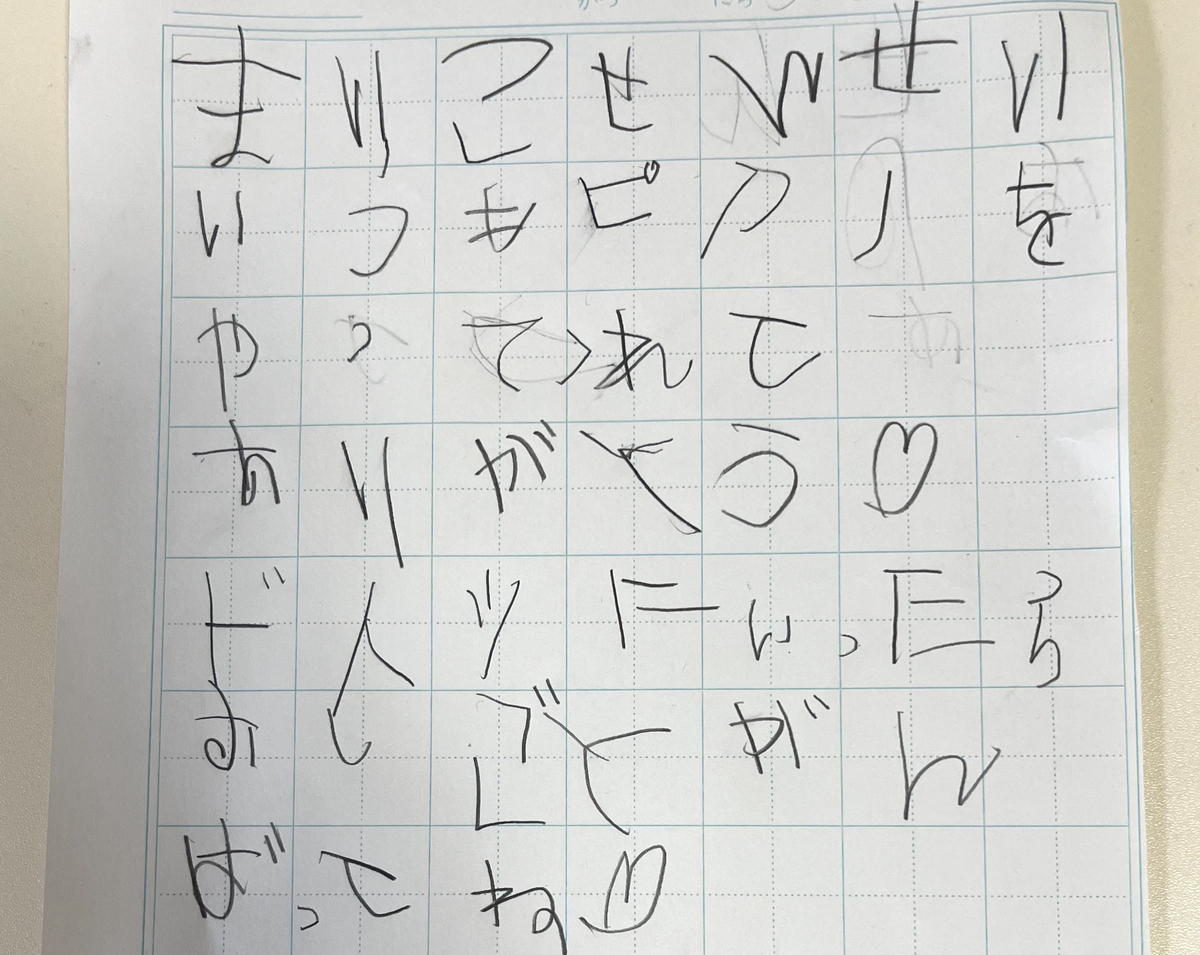 まりこせんせい
いつもピアノを
やってくれて
ありがとう♡
ドイツにいったら
おしごとがん
ばってね♡